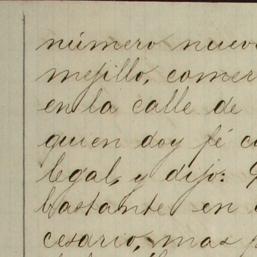 número nuev
mejillo, comer
en la calle de
quien doy fé c
legal, y dijo:
bastante en
cesario, mas